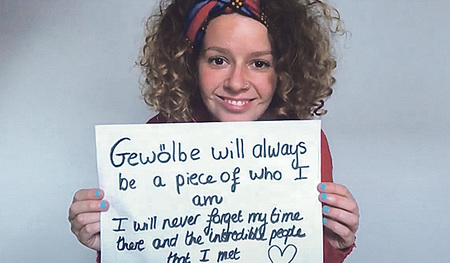 Gewölbe will always
be a piece of who I
am
I will never forget my time
there and the intredible people
that I met